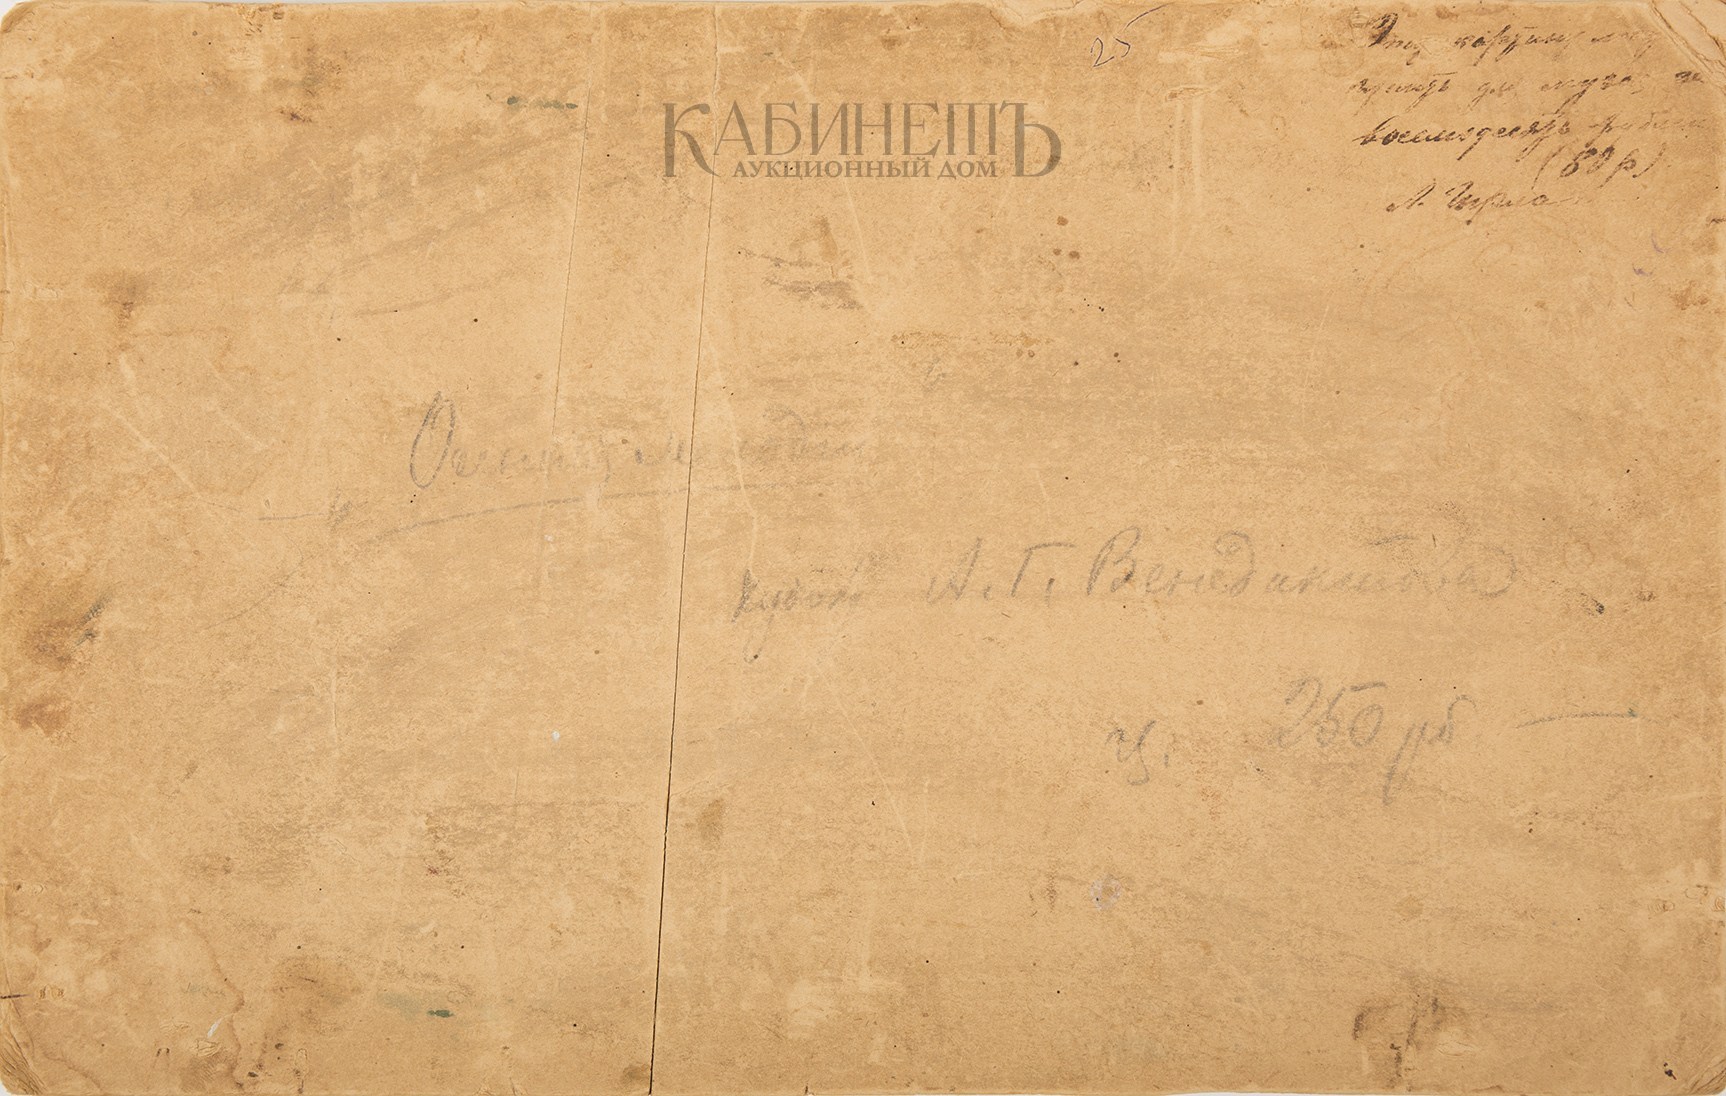 25
Эту картину могу
принять для музея за
восемьдесят рублей
(80 р)
КАБИНЕТЪ
АУКЦИОННЫЙ ДОМ
Осенняя
худож А. Г. Венедиктова
ц. 250 рб —